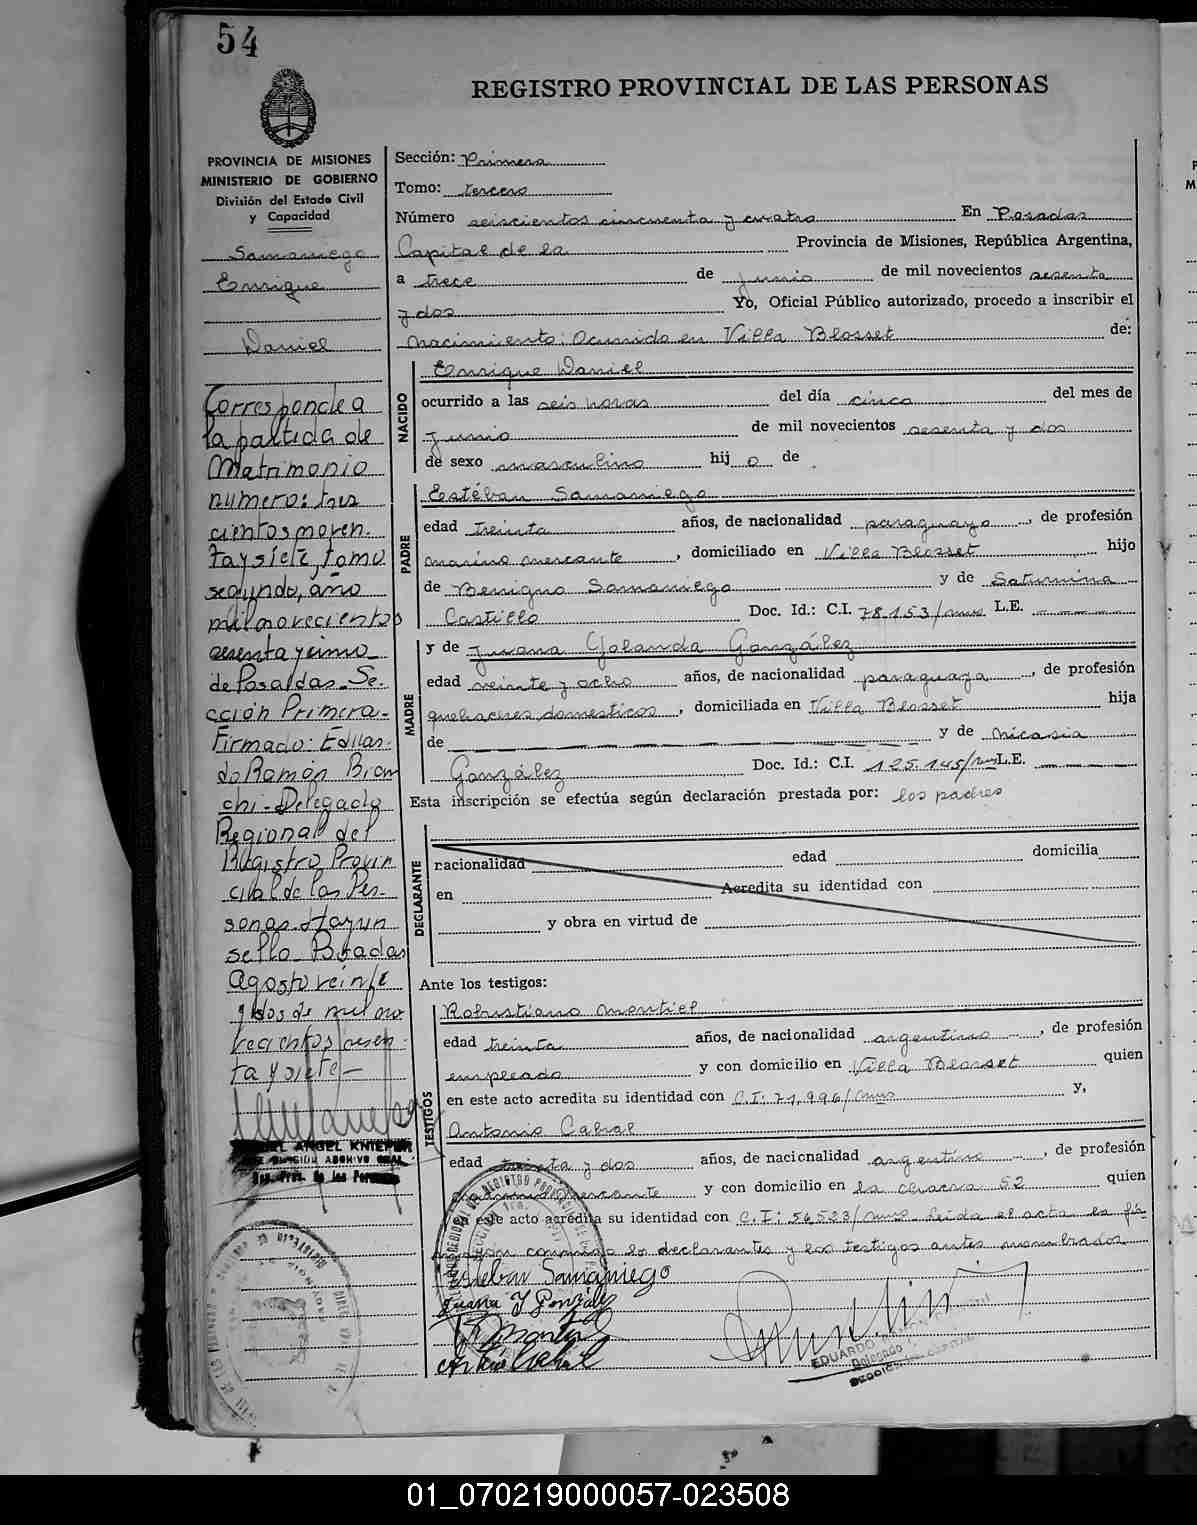 54
REGISTRO PROVINCIAL DE LAS PERSONAS
PROVINCIA DE MISIONES
MINISTERIO DE GOBIERNO
División del Estado Civil
y Capacidad
Samaniego
Enrique
Daniel
Corresponde a
la partida de
Matrimonio
numero: tres
cientos noven-
ta y siete, tomo
segundo, año
mil novecientos
sesenta y
de Posadas. Se-
cción Primera.-
Firmado: Eduar-
do Ramón Bian
chi - Delegado
Regional del
Registro Provin
cial de las Per-
sonas. Hay un
sello. Posadas
Agosto veinte
y dos de mil no
vecientos sesen-
ta y siete.-
ANGEL KNIEPER
DIVISION ARCHIVO GRAL.
Reg. Prov. de las Personas
Sección: Primera
Tomo: tercero
Número seiscientos cincuenta y cuatro En Posadas
Capital de la Provincia de Misiones, República Argentina,
a trece de junio de mil novecientos sesenta
y dos Yo, Oficial Público autorizado, procedo a inscribir el
nacimiento: Ocurrido en Villa Blosset de:
NACIDO
Enrique Daniel
ocurrido a las seis horas del día cinco del mes de
junio de mil novecientos sesenta y dos
de sexo masculino hij o de
PADRE
Estéban Samaniego
edad treinta años, de nacionalidad paraguayo, de profesión
marino mercante, domiciliado en Villa Blosset hijo
de Benigno Samaniego y de Saturnina
Castillo Doc. Id.: C.I. 78.153/mnes L.E.
MADRE
y de Juana Yolanda González
edad veinte y ocho años, de nacionalidad paraguaya, de profesión
quehaceres domesticos, domiciliada en Villa Blosset hija
de y de Nicasia
González Doc. Id.: C.I. 125.145/mnes L.E.
Esta inscripción se efectúa según declaración prestada por: los padres
DECLARANTE
nacionalidad edad domicilia
en Acredita su identidad con
y obra en virtud de
Ante los testigos:
TESTIGOS
Robustiano Montiel
edad treinta años, de nacionalidad argentino, de profesión
empleado y con domicilio en Villa Blosset quien
en este acto acredita su identidad con C.I: 71.996/mnes y,
Antonio Cabral
edad treinta y dos años, de nacionalidad argentino, de profesión
marino mercante y con domicilio en la chacra 52 quien
en este acto acredita su identidad con C.I: 56523/mnes. Leida el acta la fir
maron conmigo los declarantes y los testigos antes nombrados
Esteban Samaniego
Juana Y González
EDUARDO RAMON
Delegado
01_070219000057-023508